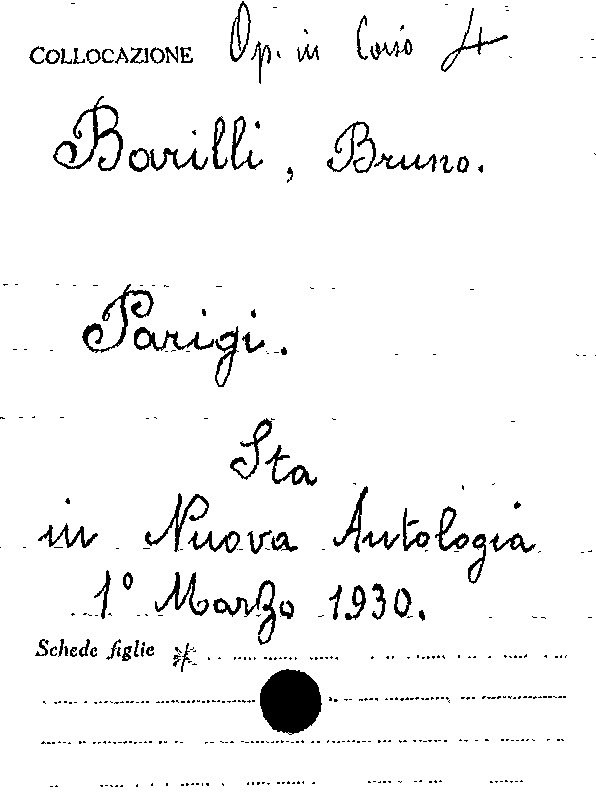 COLLOCAZIONE Op. in Corso 4
Barilli, Bruno.
Parigi.
Sta
in Nuova Antologia
1° Marzo 1930.
Schede figlie *